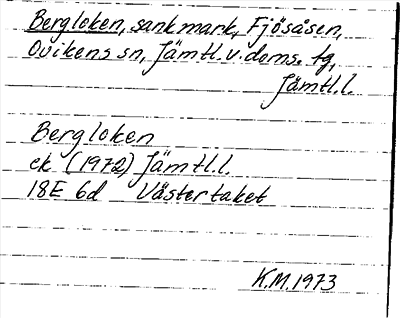 Bergloken, sank mark, Fjösåsen,
Ovikens sn, Jämtl. v. doms. tg,
Jämtl.l.
Bergloken
ek (1972) Jämtl.l.
18E 6d Västertaket
K.M. 1973